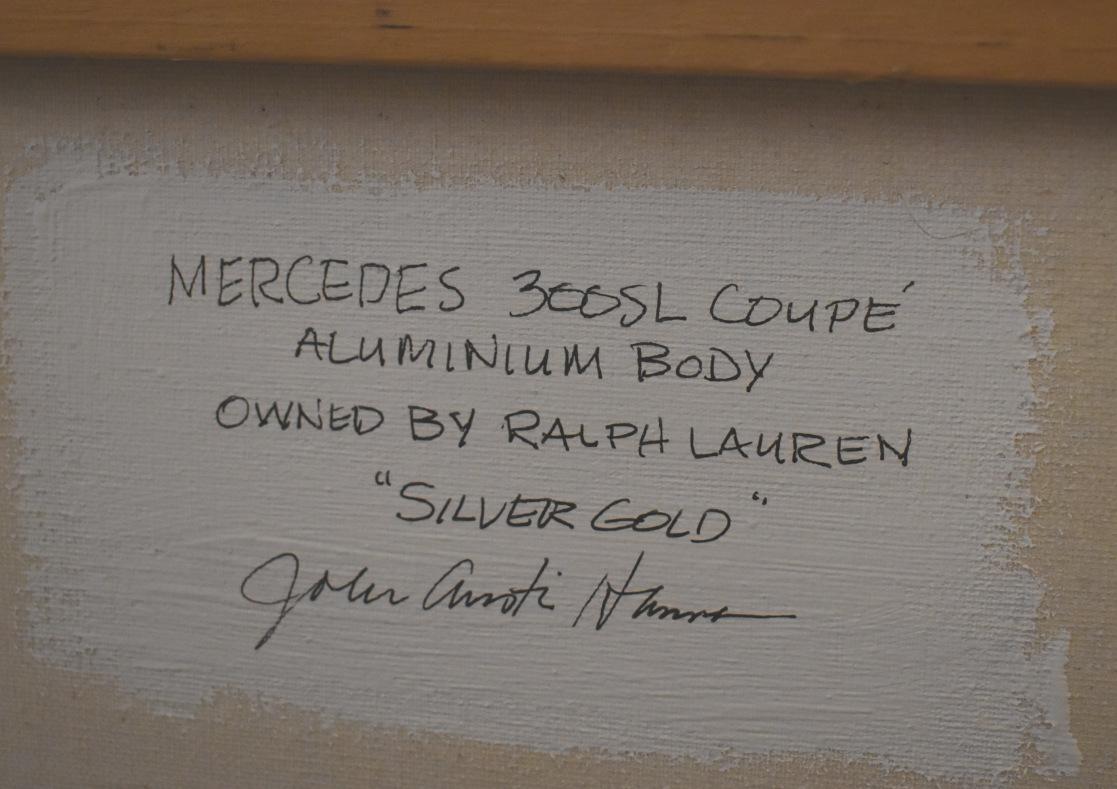 MERCEDES 300SL COUPÉ
ALUMINIUM BODY
OWNED BY RALPH LAUREN
"SILVER GOLD"
John Austin Hanna